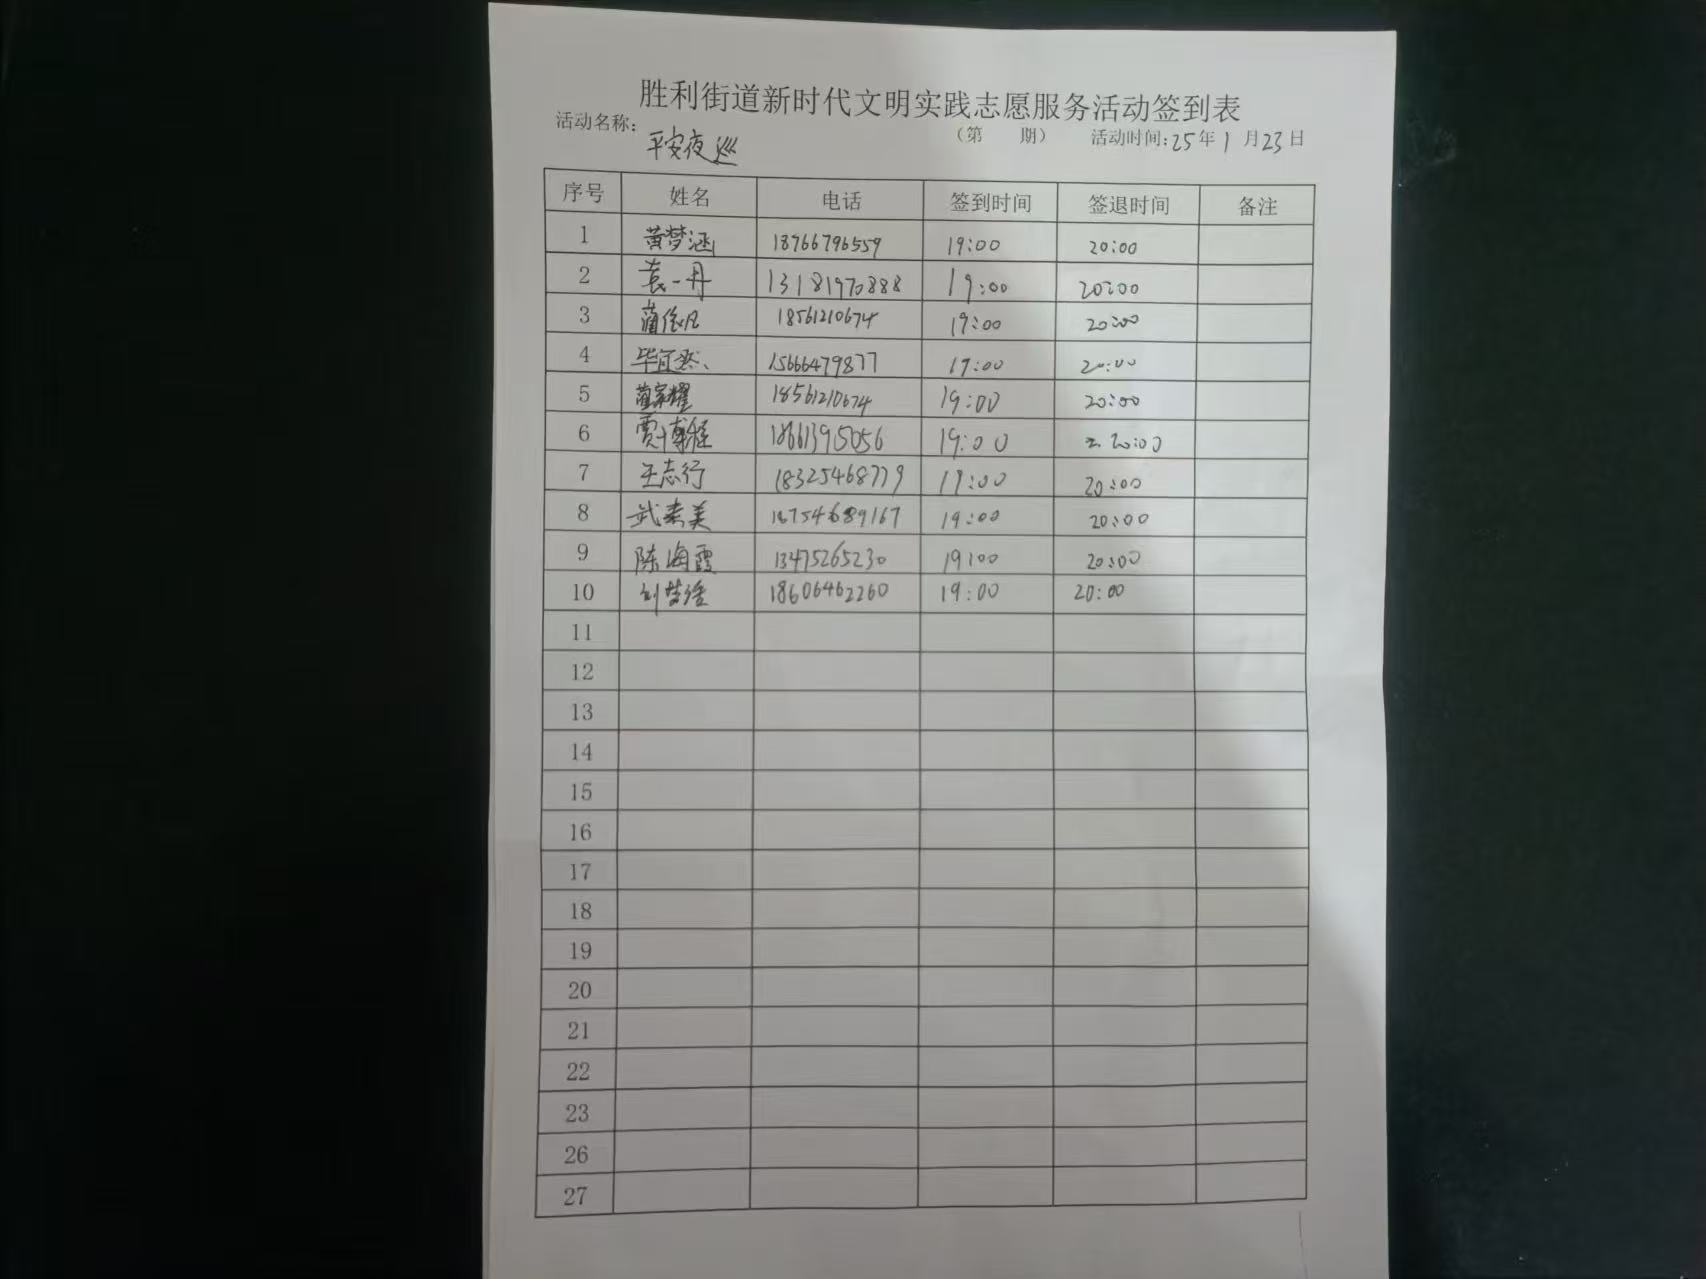 胜利街道新时代文明实践志愿服务活动签到表
活动名称: 平安夜巡 （第 期） 活动时间:25年1月23日
序号 姓名 电话 签到时间 签退时间 备注
1 黄梦涵 18766796559 19:00 20:00
2 袁一丹 13181970888 19:00 20:00
3 蔺依凡 18561210674 19:00 20:00
4 毕 15666479877 19:00 20:00
5 蔺家耀 18561210674 19:00 20:00
6 贾博程 18661395056 19:00 20:00
7 王志行 18325468779 19:00 20:00
8 武素美 18754689167 19:00 20:00
9 陈海霞 13475265230 19:00 20:00
10 刘梦 18606462260 19:00 20:00
11
12
13
14
15
16
17
18
19
20
21
22
23
26
27